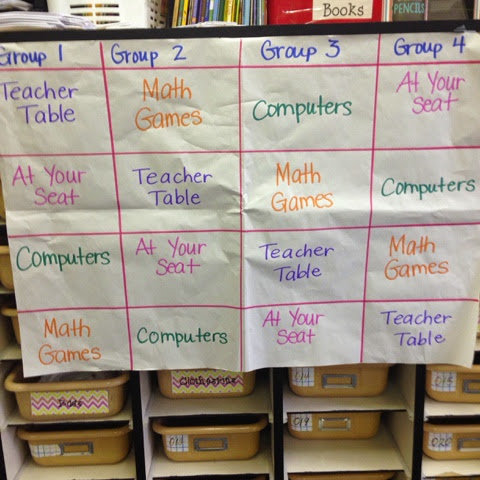 Books
PENCILS
Group 1 Group 2 Group 3 Group 4
Teacher Table
Math Games
Computers
At Your Seat
At Your Seat
Teacher Table
Math Games
Computers
Computers
At Your Seat
Teacher Table
Math Games
Math Games
Computers
At Your Seat
Teacher Table